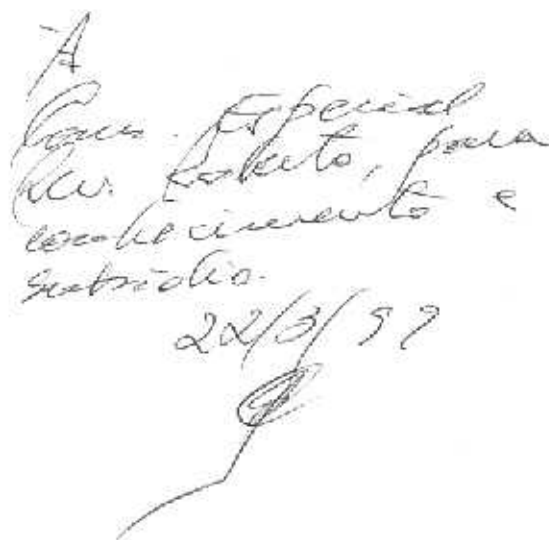 À
Com. Especial
Rev. Estatuto, para
conhecimento e
subsídio.
22/3/99